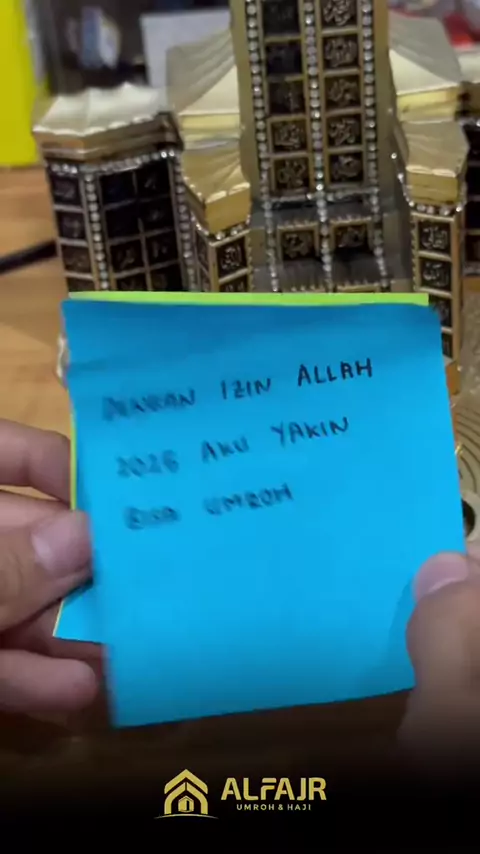 DENGAN IZIN ALLAH
2026 AKU YAKIN
BISA UMROH
ALFAJR
UMROH & HAJI